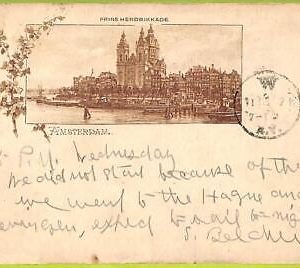 PRINS HENDRIKKADE.
AMSTERDAM.
W
7-
N.Y.
P.M. Wednesday
We did not start because of the
we went to the Hague and
expect to sail to nig
S. Belche